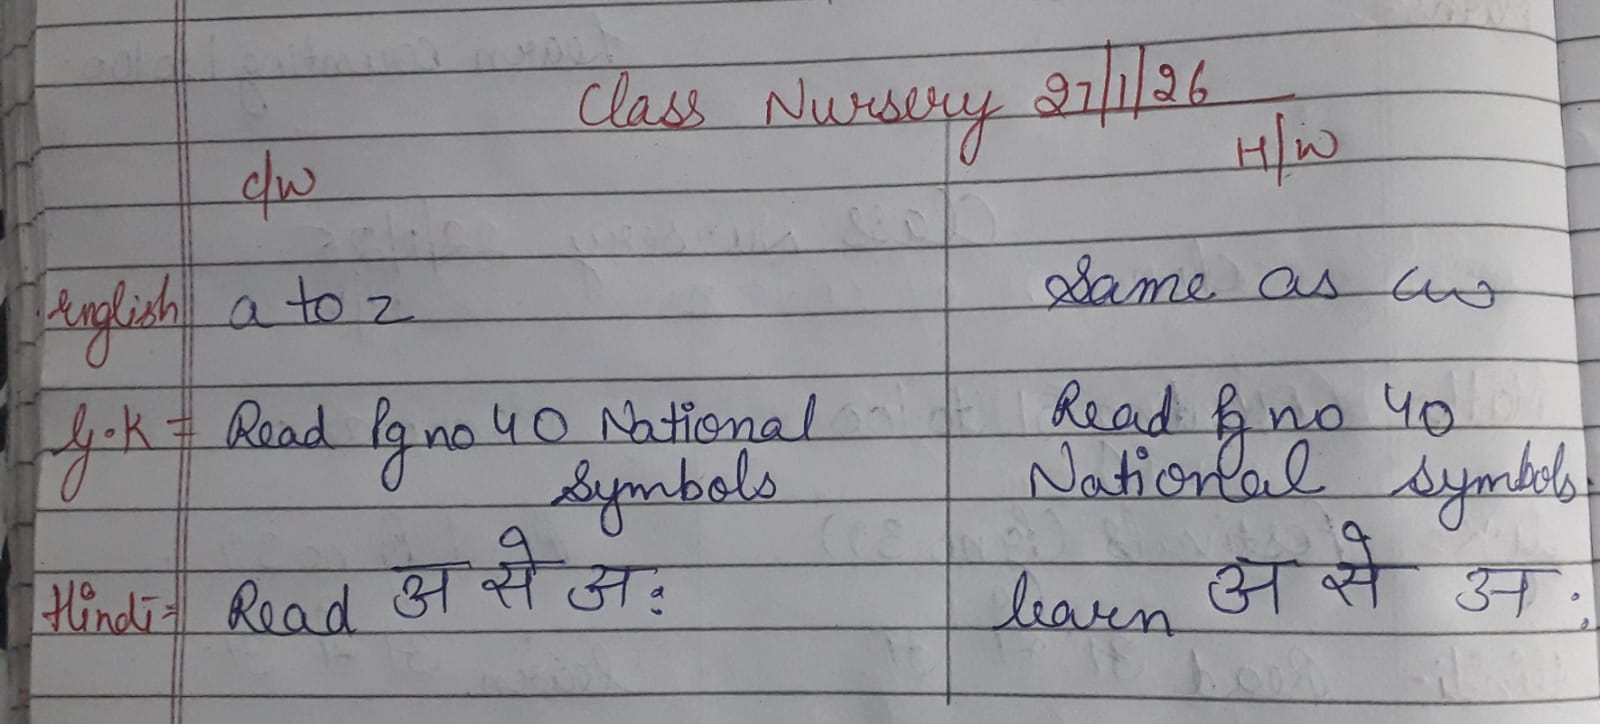 Class Nursery 27/1/26
C/W H/W
English a to z Same as cw
G.K = Read Pg no 40 National Symbols Read Pg no 40 National symbols.
Hindi = Read अ से अः learn अ से अः